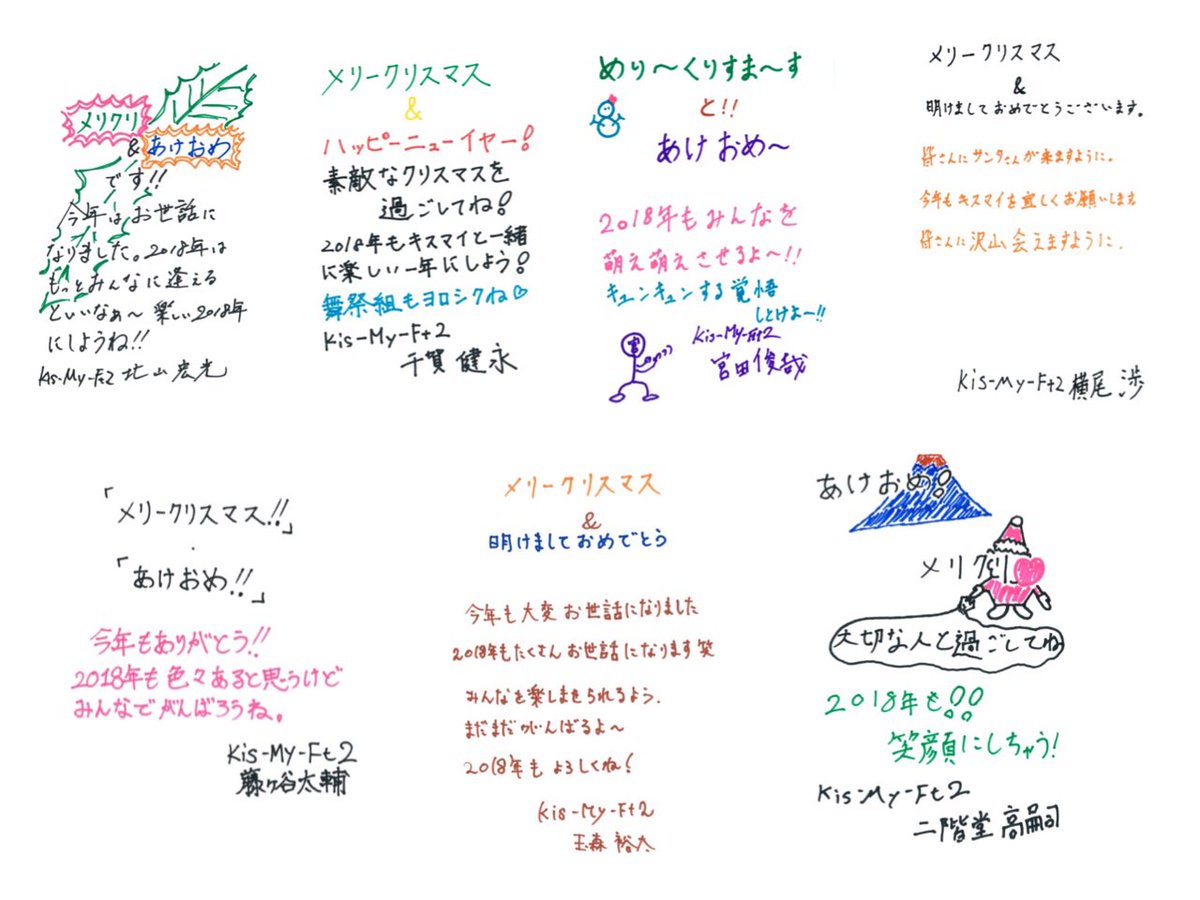 メリクリ
&あけおめ
です!!
今年はお世話に
なりました。2018年は
もっとみんなに逢える
といいなぁ〜 楽しい2018年
にしようね!!
Kis-My-Ft2 北山宏光
メリークリスマス
&
ハッピーニューイヤー!
素敵なクリスマスを
過ごしてね!
2018年もキスマイと一緒
に楽しい一年にしよう!
舞祭組もヨロシクね♡
Kis-My-Ft2
千賀 健永
めり〜くりすま〜す
と!!
あけおめ〜
2018年もみんなを
萌え萌えさせるよ〜!!
キュンキュンする覚悟
しとけよー!!
宮
Kis-My-Ft2
宮田俊哉
メリークリスマス
&
明けましておめでとうございます。
皆さんにサンタさんが来ますように。
今年もキスマイを宜しくお願いします
皆さんに沢山会えますように.
Kis-My-Ft2 横尾 渉
「メリークリスマス!!」
「あけおめ!!」
今年もありがとう!!
2018年も色々あると思うけど
みんなでがんばろうね。
Kis-My-Ft2
藤ヶ谷太輔
メリークリスマス
&
明けましておめでとう
今年も大変お世話になりました
2018年もたくさんお世話になります笑
みんなを楽しませられるよう.
まだまだがんばるよ〜
2018年もよろしくね!
Kis-My-Ft2
玉森 裕太
あけおめ!
メリクリ
大切な人と過ごしてね
2018年も!!
笑顔にしちゃう!
Kis-My-Ft2
二階堂 高嗣